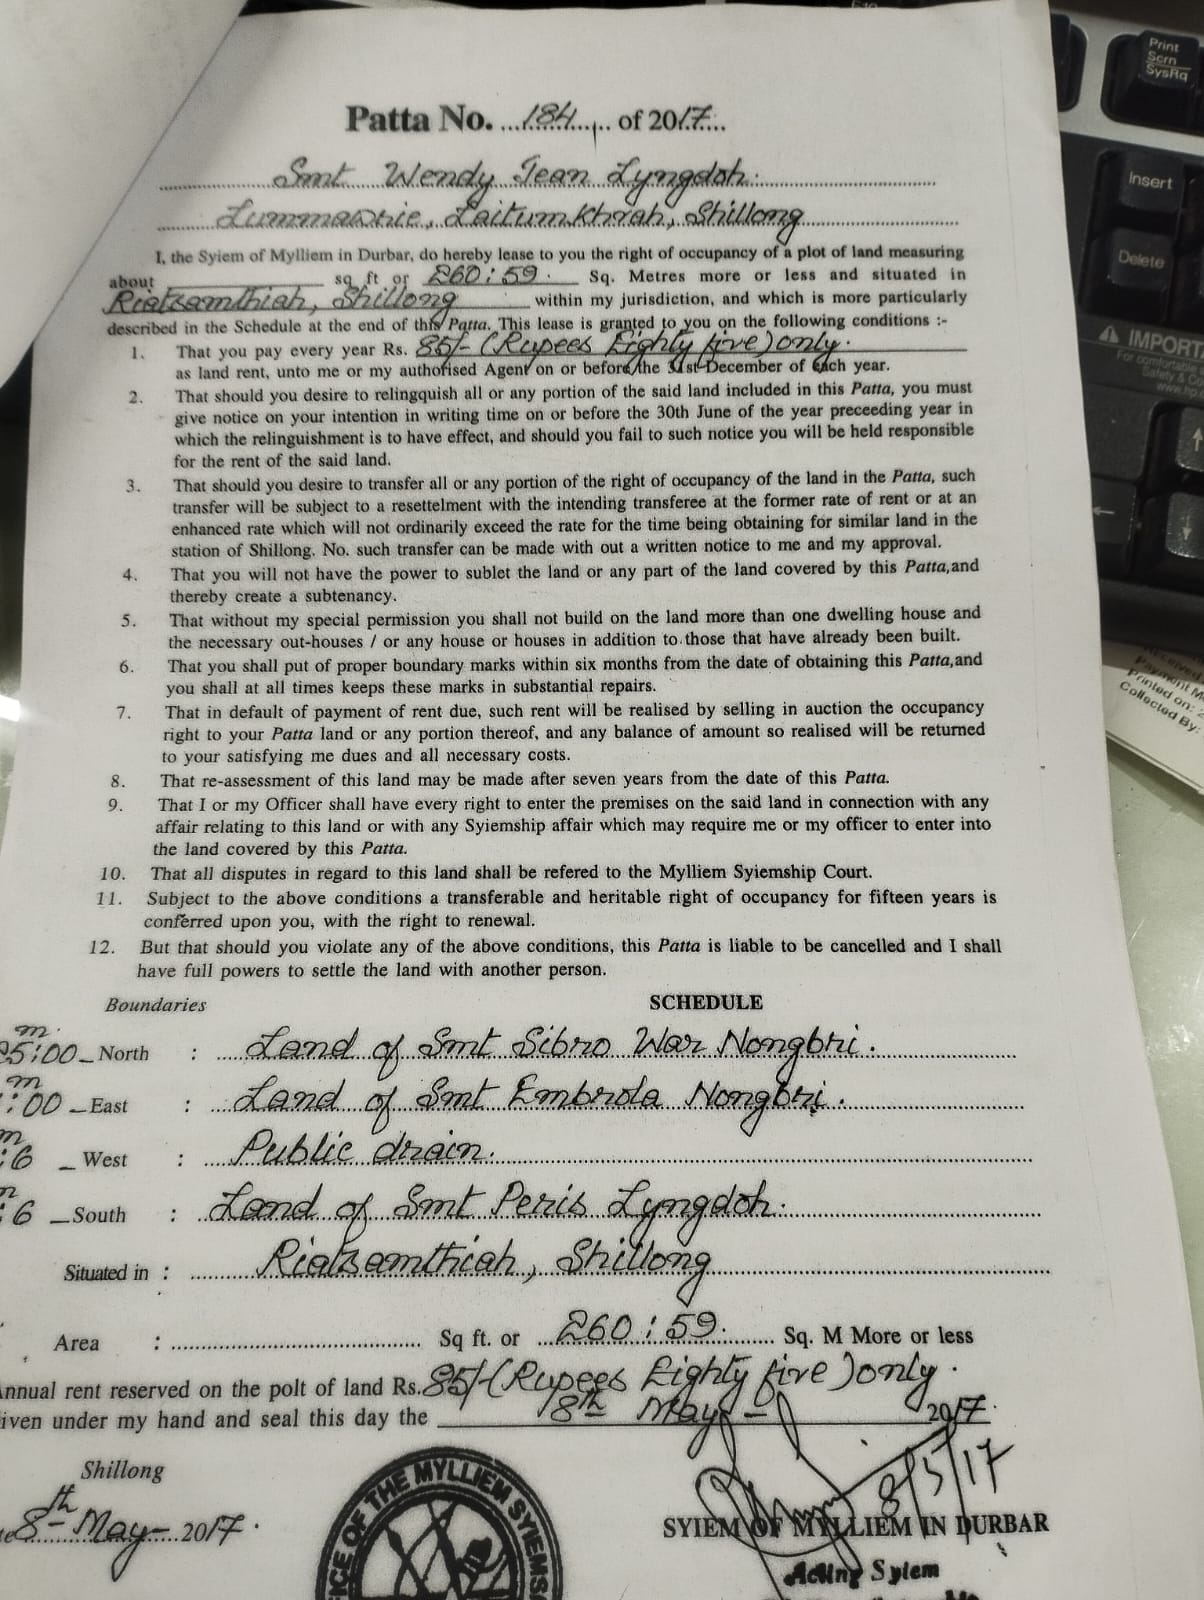 Patta No. 184 of 2017
Smt Wendy Jean Lyngdoh.
Lummawrie, Laitumkhrah, Shillong
I, the Syiem of Mylliem in Durbar, do hereby lease to you the right of occupancy of a plot of land measuring
about sq ft or 260:59. Sq. Metres more or less and situated in
Riatsamthiah, Shillong within my jurisdiction, and which is more particularly
described in the Schedule at the end of this Patta. This lease is granted to you on the following conditions :-
1. That you pay every year Rs. 85/- (Rupees Eighty five) only.
as land rent, unto me or my authorised Agent on or before the 31st December of each year.
2. That should you desire to relingquish all or any portion of the said land included in this Patta, you must
give notice on your intention in writing time on or before the 30th June of the year preceeding year in
which the relinguishment is to have effect, and should you fail to such notice you will be held responsible
for the rent of the said land.
3. That should you desire to transfer all or any portion of the right of occupancy of the land in the Patta, such
transfer will be subject to a resettelment with the intending transferee at the former rate of rent or at an
enhanced rate which will not ordinarily exceed the rate for the time being obtaining for similar land in the
station of Shillong. No. such transfer can be made with out a written notice to me and my approval.
4. That you will not have the power to sublet the land or any part of the land covered by this Patta,and
thereby create a subtenancy.
5. That without my special permission you shall not build on the land more than one dwelling house and
the necessary out-houses / or any house or houses in addition to those that have already been built.
6. That you shall put of proper boundary marks within six months from the date of obtaining this Patta,and
you shall at all times keeps these marks in substantial repairs.
7. That in default of payment of rent due, such rent will be realised by selling in auction the occupancy
right to your Patta land or any portion thereof, and any balance of amount so realised will be returned
to your satisfying me dues and all necessary costs.
8. That re-assessment of this land may be made after seven years from the date of this Patta.
9. That I or my Officer shall have every right to enter the premises on the said land in connection with any
affair relating to this land or with any Syiemship affair which may require me or my officer to enter into
the land covered by this Patta.
10. That all disputes in regard to this land shall be refered to the Mylliem Syiemship Court.
11. Subject to the above conditions a transferable and heritable right of occupancy for fifteen years is
conferred upon you, with the right to renewal.
12. But that should you violate any of the above conditions, this Patta is liable to be cancelled and I shall
have full powers to settle the land with another person.
Boundaries SCHEDULE
m.
5:00 - North : Land of Smt Sibro War Nongbri.
m
:00 - East : Land of Smt Embrola Nongbri.
m
:6 - West : Public drain.
:6 - South : Land of Smt Peris Lyngdoh.
Situated in : Riatsamthiah, Shillong
Area : Sq ft. or 260:59. Sq. M More or less
nnual rent reserved on the polt of land Rs. 85/- (Rupees Eighty five) only.
iven under my hand and seal this day the 8th May - 2017.
Shillong
8th May - 2017.
8/5/17
SYIEM OF MYLLIEM IN DURBAR
Acting Syiem
ICE OF THE MYLLIEM SYIEMS
Print
Scrn
SysRq
Insert
Delete
IMPORT
For comfortable
Safety & C
www.hp.c
Received
Payment M
Printed on: 2
Collected By: